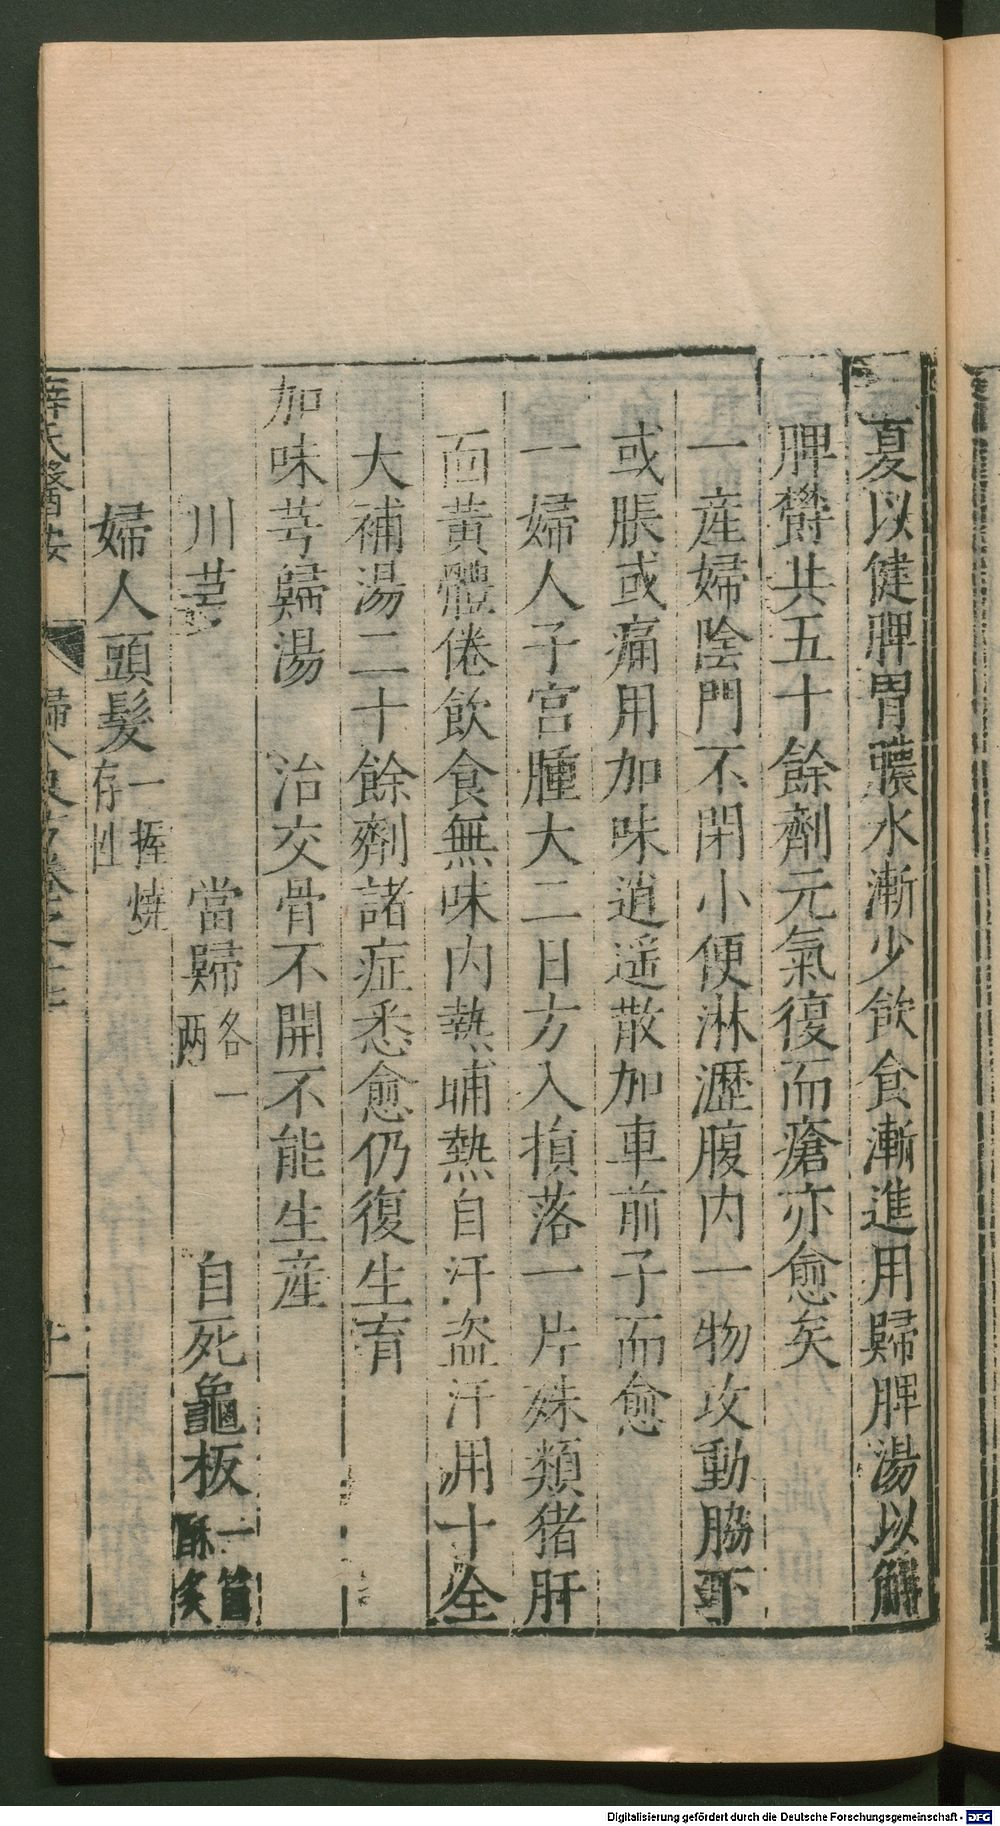 夏以健脾胃膿水漸少飲食漸進用歸脾湯以解
脾欎共五十餘劑元氣復而瘡亦愈矣
一產婦陰門不閉小便淋瀝腹内一物攻動脇下
或脹或痛用加味逍遥散加車前子而愈
一婦人子宮腫大二日方入損落一片殊類猪肝
面黃體倦飲食無味内熱晡熱自汗盗汗用十全
大補湯二十餘劑諸症悉愈仍復生育
加味芎歸湯　治交骨不開不能生産
川芎　當歸各一两　自死龜板一箇酥炙
婦人頭髮一握燒存性
薛氏醫按　婦人良方卷之　十一
Digitalisierung gefördert durch die Deutsche Forschungsgemeinschaft - DFG